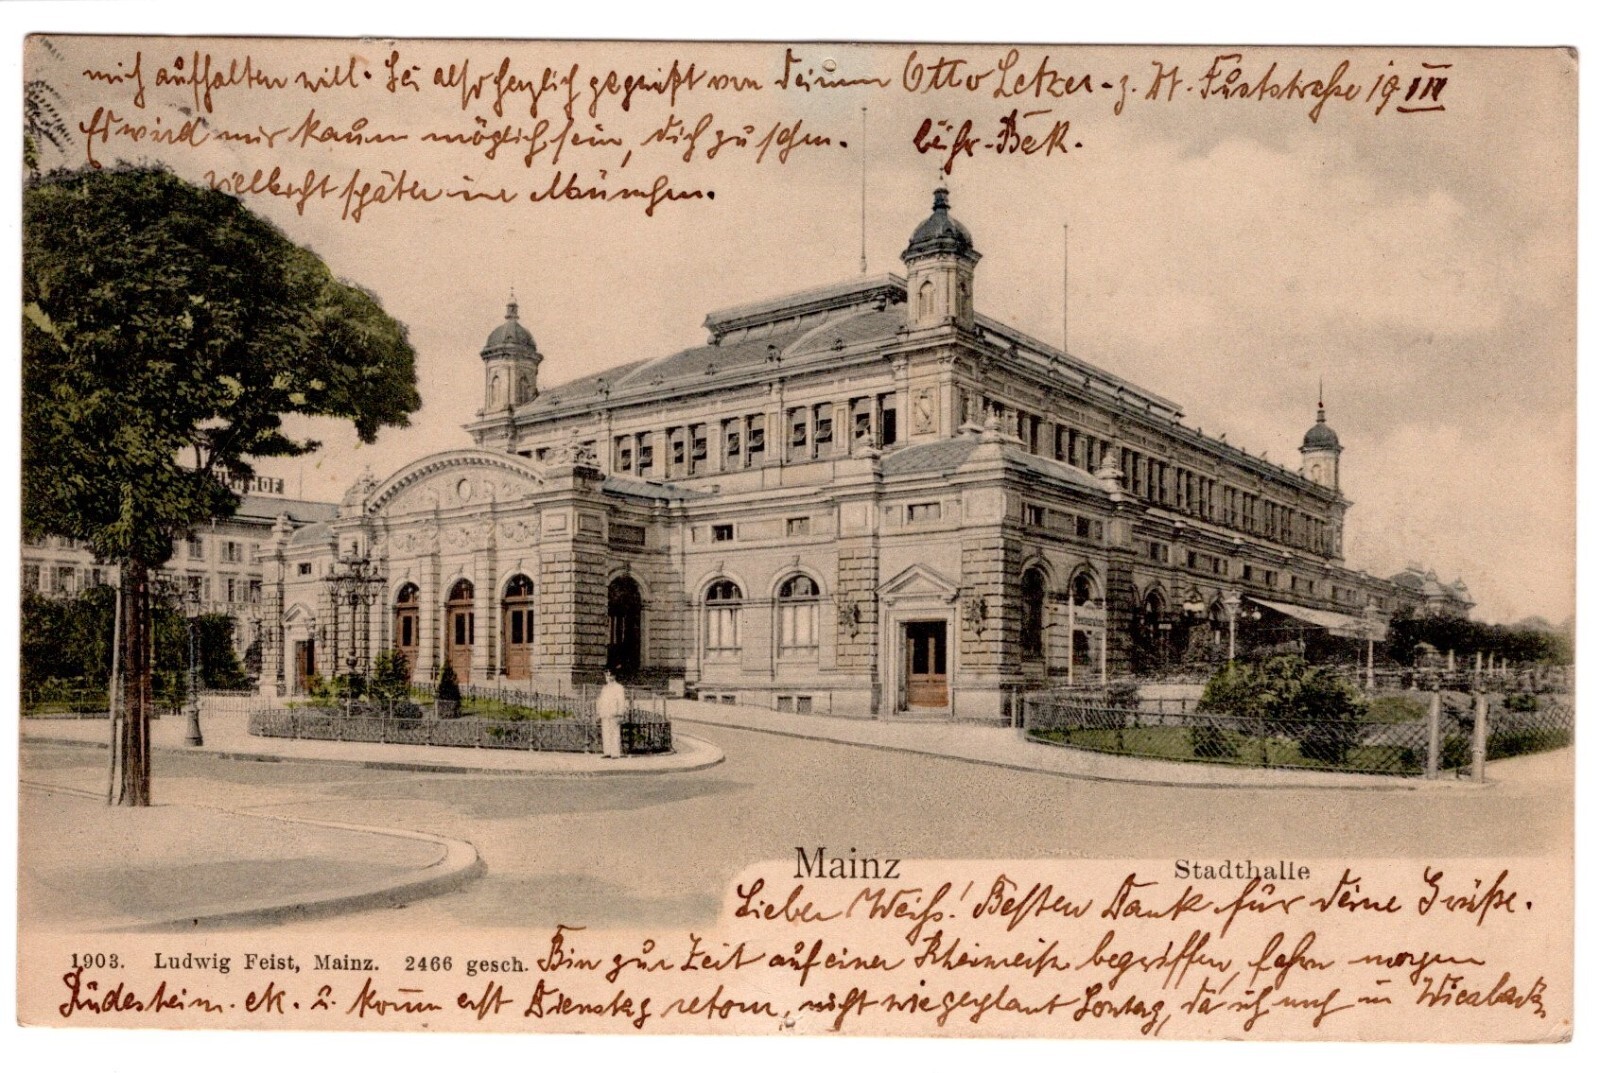 mich aufhalten will. Sei also herzlich gegrüßt von deinem Otto Letzer - z. Zt. Fuststraße 19 III
Es wird mir kaum möglich sein, dich zu sehen.
Vielleicht später in München.
HOF
Mainz
Stadthalle
Lieber Weiß! Besten Dank für deine Grüße.
1903. Ludwig Feist, Mainz. 2466 gesch.
Bin zur Zeit auf einer Rheinreise begriffen, fahre morgen
Rüdesheim etc. u. komm erst Dienstag retour, nicht wie geglaubt Sontag, da ich mich in Wiesbaden